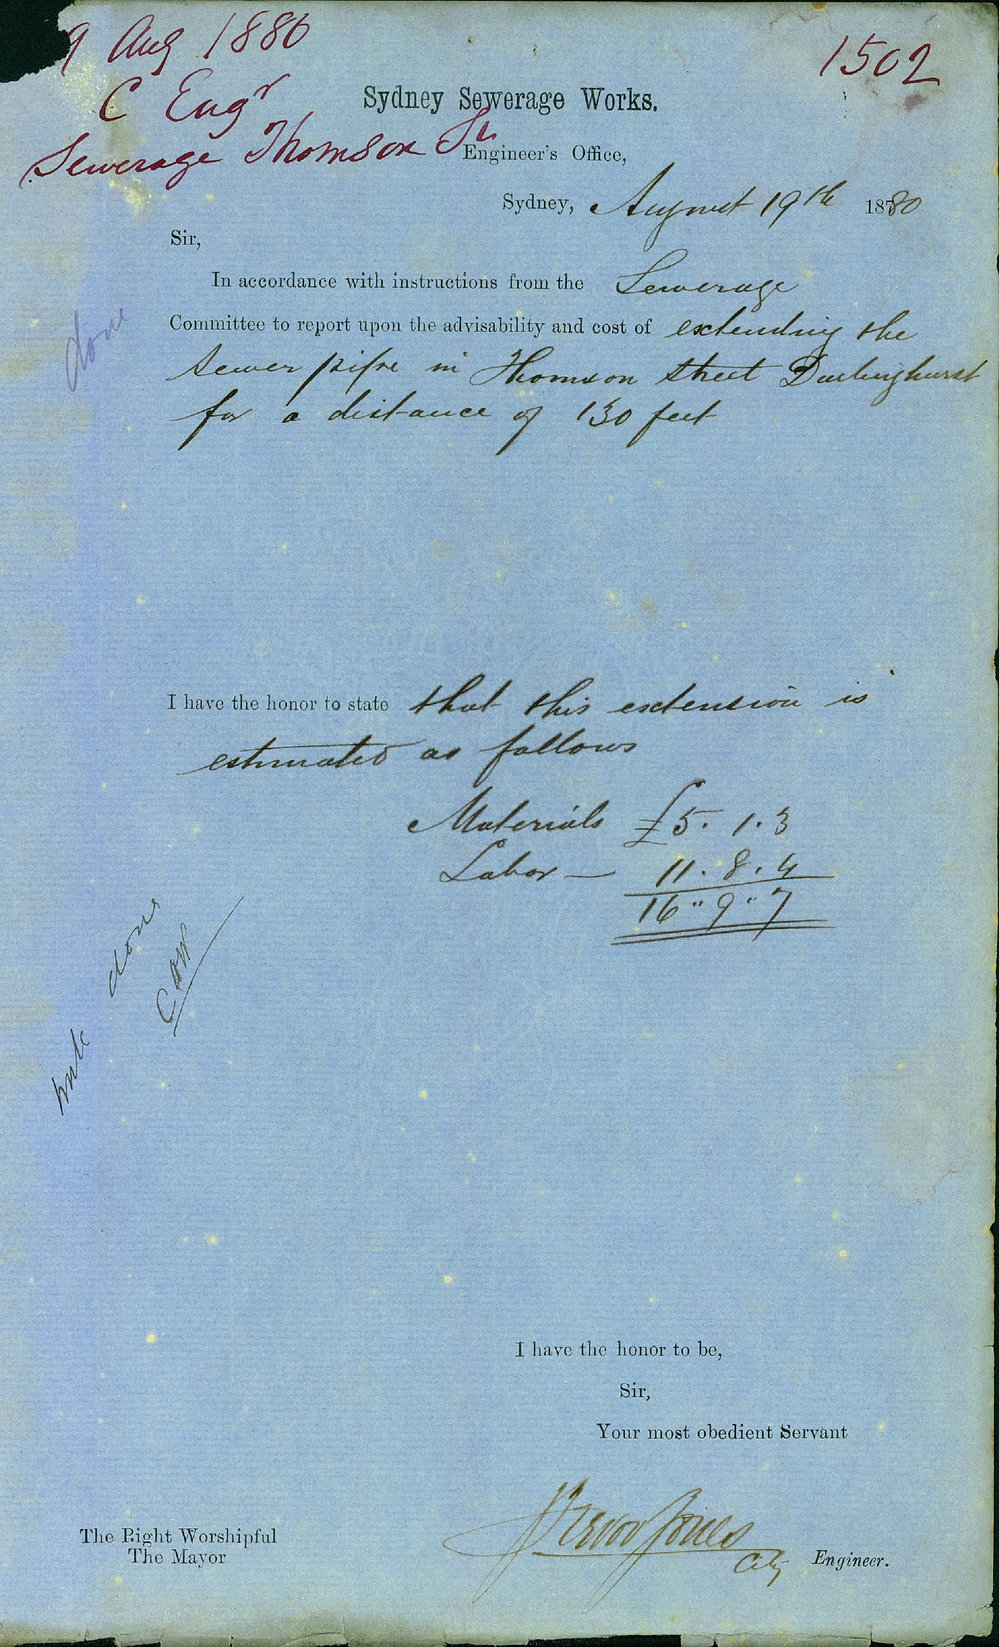 9 Aug 1880
1502
C Engr
Sydney Sewerage Works.
Sewerage Thomson St
Engineer's Office,
Sydney, August 19th 1880
Sir,
In accordance with instructions from the Sewerage
Committee to report upon the advisability and cost of extending the
sewer pipe in Thomson street Darlinghurst
for a distance of 130 feet
done
I have the honor to state that this extension is
estimated as follows
Materials £5.1.3
Labor — 11.8.4
16"9"7
done
I have the honor to be,
Sir,
Your most obedient Servant
Trevor Jones
City Engineer.
The Right Worshipful
The Mayor